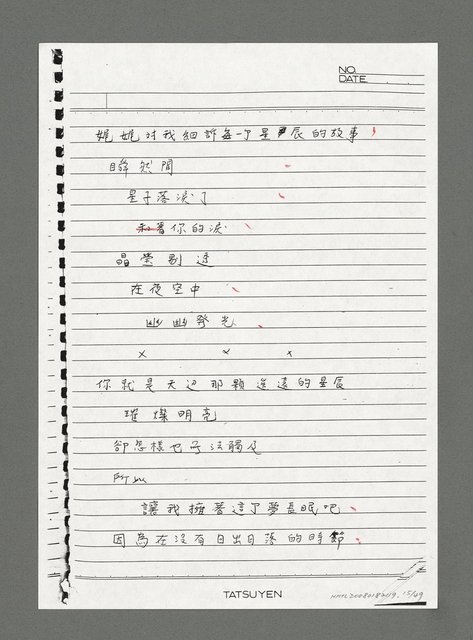 NO.
DATE
娓娓对我細訴每一个星辰的故事
瞬然間
星子落淚了
和着你的淚
晶瑩剔透
在夜空中
幽幽発光
× × ×
你就是天边那顆遥遠的星辰
璀燦明亮
卻怎樣也无法觸及
所以
讓我擁著這个夢長眠吧
因為在沒有日出月落的時節
TATSUYEN
NMTL20080182119. 15/49